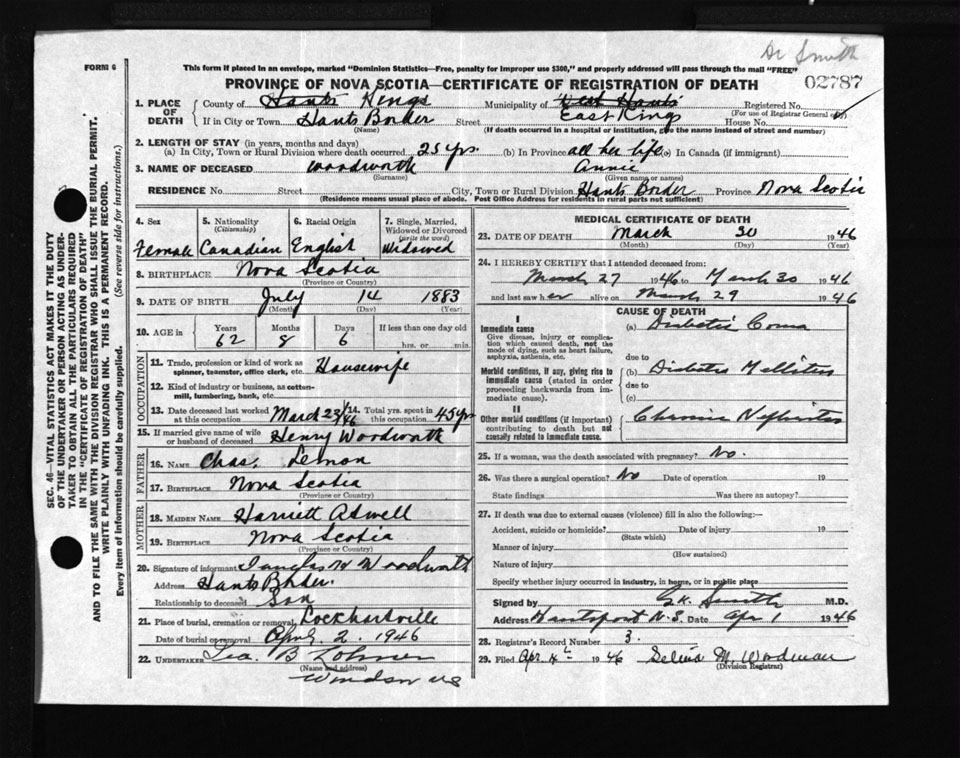 Dr Smith
FORM 6
This form if placed in an envelope, marked "Dominion Statistics—Free, penalty for improper use $300," and properly addressed will pass through the mail "FREE"
PROVINCE OF NOVA SCOTIA—CERTIFICATE OF REGISTRATION OF DEATH
02787
1. PLACE OF DEATH
County of Hants Kings
Municipality of West Hants East Kings
Registered No.
(For use of Registrar General only)
If in City or Town Hants Border Street House No.
(Name) (If death occurred in a hospital or institution, give the name instead of street and number)
2. LENGTH OF STAY (in years, months and days)
(a) In City, Town or Rural Division where death occurred 25 yrs. (b) In Province all her life (c) In Canada (if immigrant)
3. NAME OF DECEASED Woodworth Annie
(Surname) (Given name or names)
RESIDENCE No. Street City, Town or Rural Division Hants Border Province Nova Scotia
(Residence means usual place of abode. Post Office Address for residents in rural parts not sufficient)
4. Sex
Female
5. Nationality
(Citizenship)
Canadian
6. Racial Origin
English
7. Single, Married, Widowed or Divorced
(write the word)
Widowed
8. BIRTHPLACE Nova Scotia
(Province or Country)
9. DATE OF BIRTH July 14 1883
(Month) (Day) (Year)
10. AGE in
Years Months Days If less than one day old
62 8 6 hrs. or min.
OCCUPATION
11. Trade, profession or kind of work as spinner, teamster, office clerk, etc. Housewife
12. Kind of industry or business, as cotton-mill, lumbering, bank, etc.
13. Date deceased last worked at this occupation March 23/46
14. Total yrs. spent in this occupation 45 yrs
15. If married give name of wife or husband of deceased Henry Woodworth
FATHER
16. NAME Chas. Lemon
17. BIRTHPLACE Nova Scotia
(Province or Country)
MOTHER
18. MAIDEN NAME Harriett Atwell
19. BIRTHPLACE Nova Scotia
(Province or Country)
20. Signature of informant Woodworth
Address Hants Border
Relationship to deceased Son
21. Place of burial, cremation or removal Lockhartville
Date of burial or removal April 2, 1946
22. UNDERTAKER B
(Name and address)
Windsor NS
MEDICAL CERTIFICATE OF DEATH
23. DATE OF DEATH March 30 1946
(Month) (Day) (Year)
24. I HEREBY CERTIFY that I attended deceased from:
March 27 1946 to March 30 1946
and last saw her alive on March 29 1946
CAUSE OF DEATH
I
Immediate cause
Give disease, injury or complication which caused death, not the mode of dying, such as heart failure, asphyxia, asthenia, etc.
(a) Diabetic Coma
due to
Morbid conditions, if any, giving rise to immediate cause (stated in order proceeding backwards from immediate cause).
(b) Diabetes Mellitus
due to
(c)
II
Other morbid conditions (if important) contributing to death but not causally related to immediate cause.
Chronic Nephritis
25. If a woman, was the death associated with pregnancy? No.
26. Was there a surgical operation? No Date of operation 19
State findings Was there an autopsy?
27. If death was due to external causes (violence) fill in also the following:—
Accident, suicide or homicide? Date of injury 19
(State which)
Manner of injury
(How sustained)
Nature of injury
Specify whether injury occurred in industry, in home, or in public place
Signed by Smith M.D.
Address Hantsport N.S. Date Apr 1 1946
28. Registrar's Record Number 3.
29. Filed Apr. 4th 1946 Selina M. Woodman
(Division Registrar)
SEC. 46—VITAL STATISTICS ACT MAKES IT THE DUTY
OF THE UNDERTAKER OR PERSON ACTING AS UNDER-
TAKER TO OBTAIN ALL THE PARTICULARS REQUIRED
IN THE "CERTIFICATE OF REGISTRATION OF DEATH"
AND TO FILE THE SAME WITH THE DIVISION REGISTRAR WHO SHALL ISSUE THE BURIAL PERMIT.
WRITE PLAINLY WITH UNFADING INK. THIS IS A PERMANENT RECORD.
Every item of information should be carefully supplied. (See reverse side for instructions.)